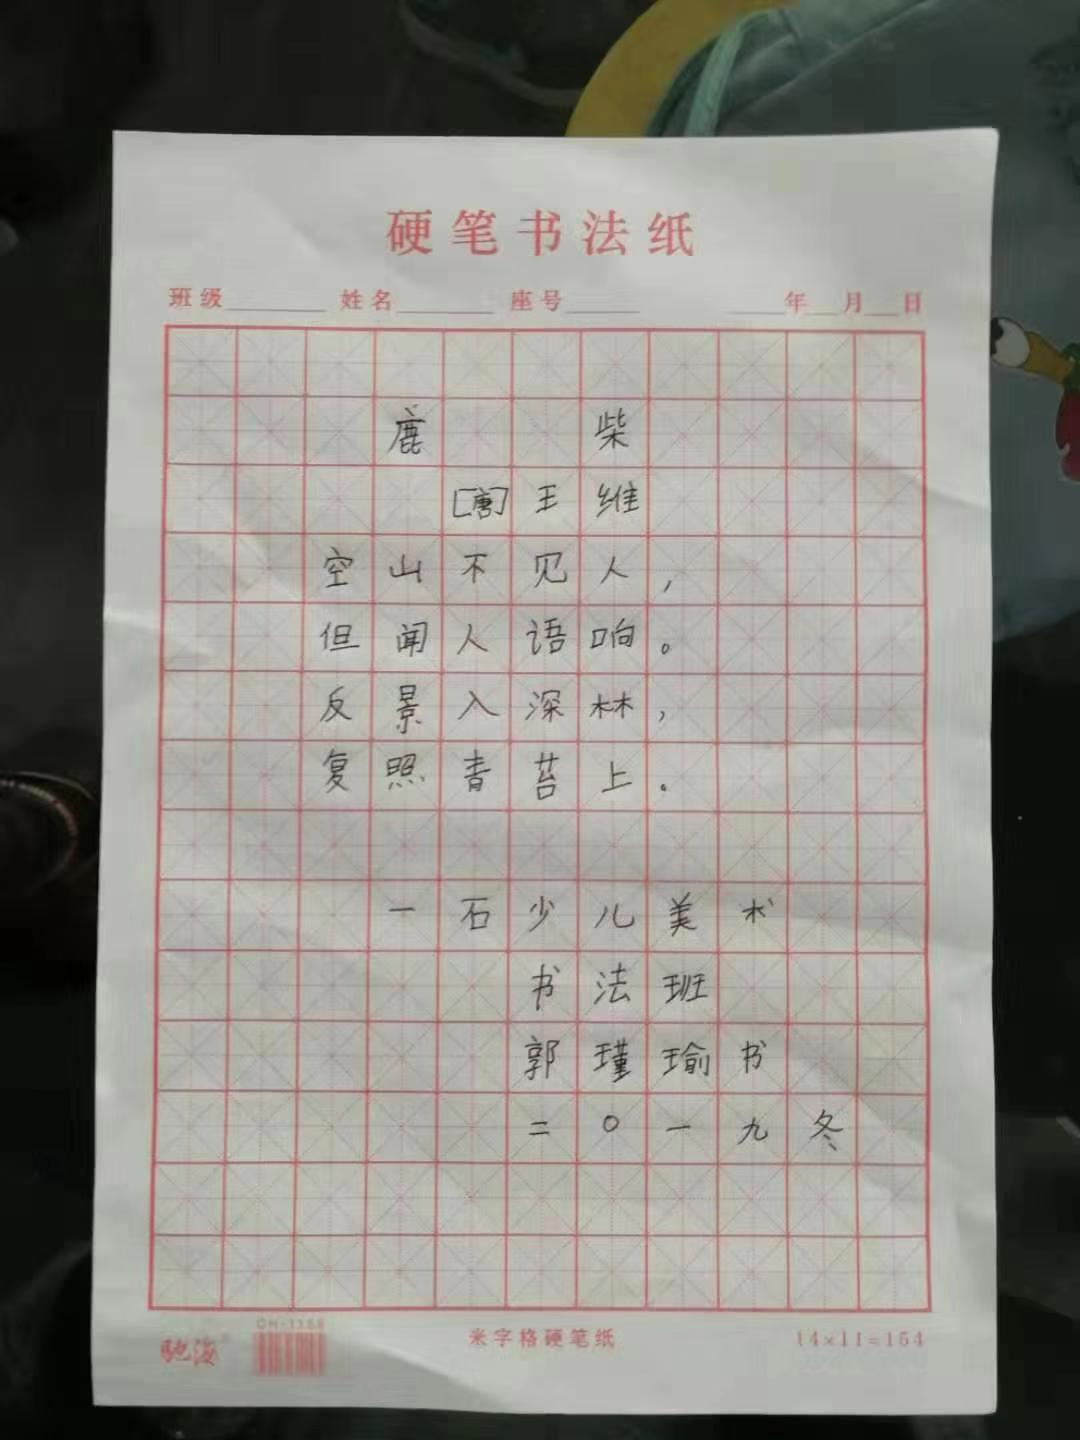 硬笔书法纸
班级 姓名 座号 年 月 日
鹿 柴
[唐]王维
空山不见人，
但闻人语响。
反景入深林，
复照青苔上。
一石少儿美术
书法班
郭瑾瑜书
二〇一九冬
驰海 CH-1168 米字格硬笔纸 14×11=154